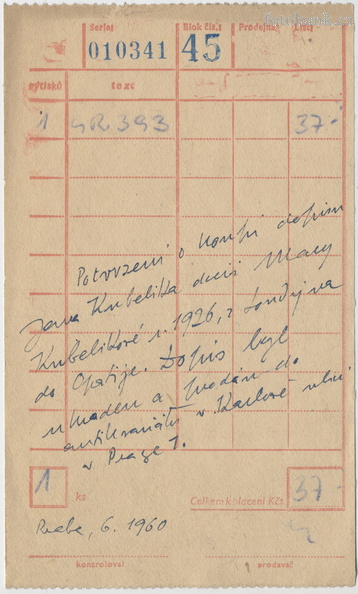 Serie:
Blok čís.:
Prodejna:
Účet:
010341
45
výtisků
text
1
GR 393
37.-
Potvrzení o koupi dopisu
Jana Kubelíka dceři Mary
Kubelíkové r. 1926, z Londýna
do Opatije. Dopis byl
ukraden a prodán do
antikvariátu v Karlově ulici
v Praze 1.
1
ks
Celkem k placení Kčs
37.-
Praha, 6. 1960
kontroloval
prodavač